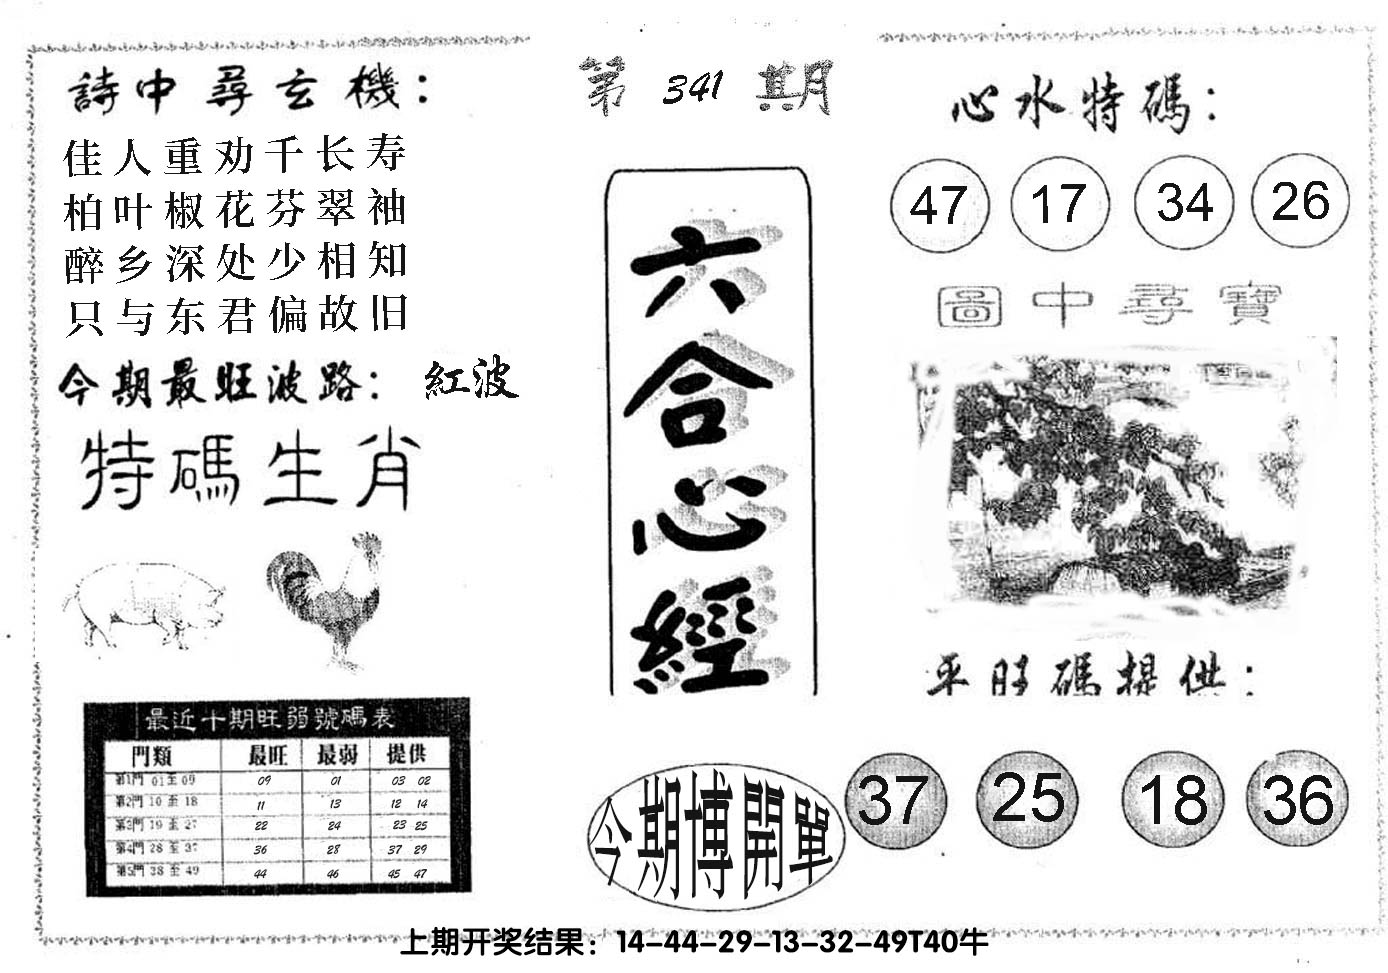 詩中尋玄機：
佳人重劝千长寿
柏叶椒花芬翠袖
醉乡深处少相知
只与东君偏故旧
今期最旺波路： 紅波
特碼生肖
最近十期旺弱號碼表
門類 最旺 最弱 提供
第1門 01至09 09 01 03 02
第2門 10至18 11 13 12 14
第3門 19至27 22 24 23 25
第4門 28至37 36 28 37 29
第5門 38至49 44 46 45 47
第341期
六合心經
今期博開單
心水特碼：
47 17 34 26
圖中尋寶
平旺碼提供：
37 25 18 36
上期开奖结果：14-44-29-13-32-49T40牛